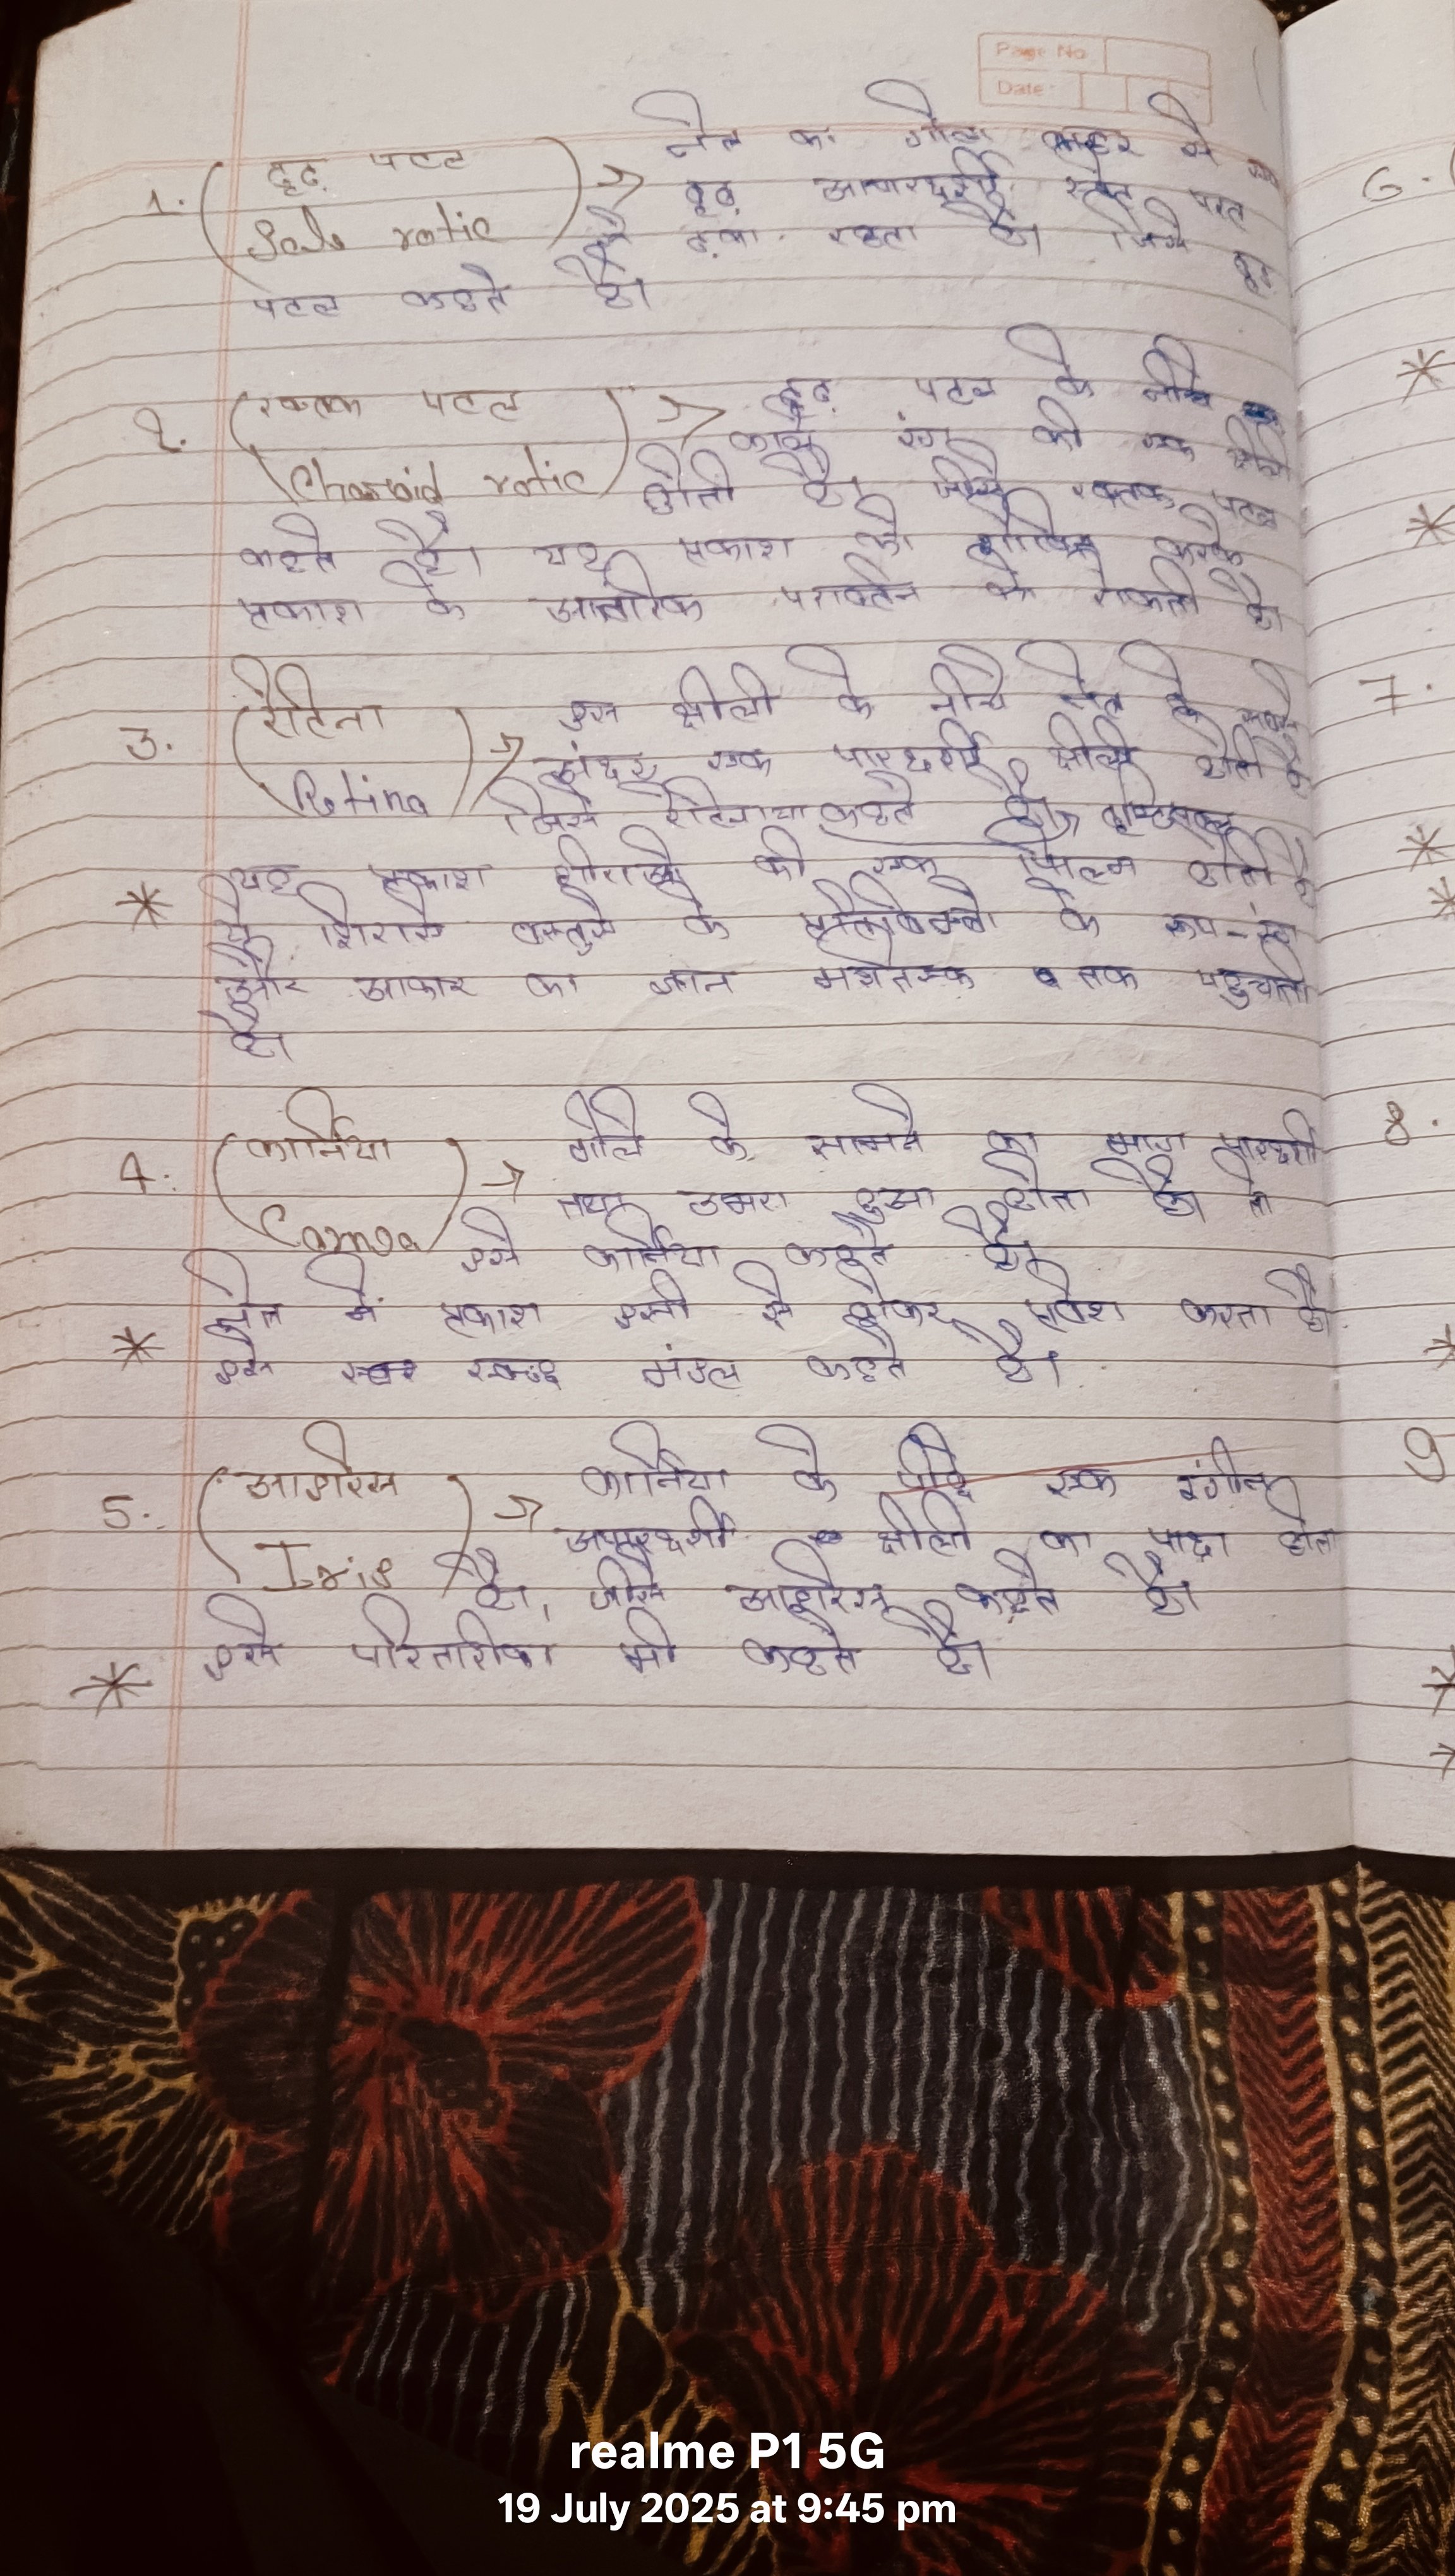 Page No
Date:
1. (दृढ़ पटल → नेत्र का गोला बाहर से
Scle rotic) दृढ़ अपारदर्शी श्वेत परत
से ढ़का रहता है। जिसे दृढ़
पटल कहते है।
2. (रक्तक पटल → दृढ़ पटल के नीचे
काले रंग की एक झीली
Choroid rotic) होती है। जिसे रक्तक पटल
कहते है। यह प्रकाश को शोषित करके
प्रकाश के आन्तरिक परावर्तन को रोकती है।
3. (रेटिना → इस झीली के नीचे नेत्र के सबसे
अंदर एक पारदर्शी झीली होती है
Retina) जिसे रेटिना या कहते है।
* यह प्रकाश शीराओ की एक फिल्म होती है
ये शिराये वस्तुओ के प्रतिबिम्बो के रूप-रंग
और आकार का ज्ञान मशतिस्क तक पहुचाती
है।
4. (कार्निया → गोले के सामने का भाग पारदर्शी
तथा उभरा हुआ होता है।
Cornea) इसे कार्निया कहते है।
नेत्र में प्रकाश इसी से होकर प्रवेश करता है।
* इसे स्वच्छ मंडल कहते है।
5. (आइरिस → कार्निया के पीछे एक रंगीन
अपारदर्शी झीली का पर्दा होता
Iris) है, जीसे आइरिस कहते है।
* इसे परितारिका भी कहते है।
6.
*
*
7.
*
*
8.
*
9
*
*
realme P1 5G
19 July 2025 at 9:45 pm